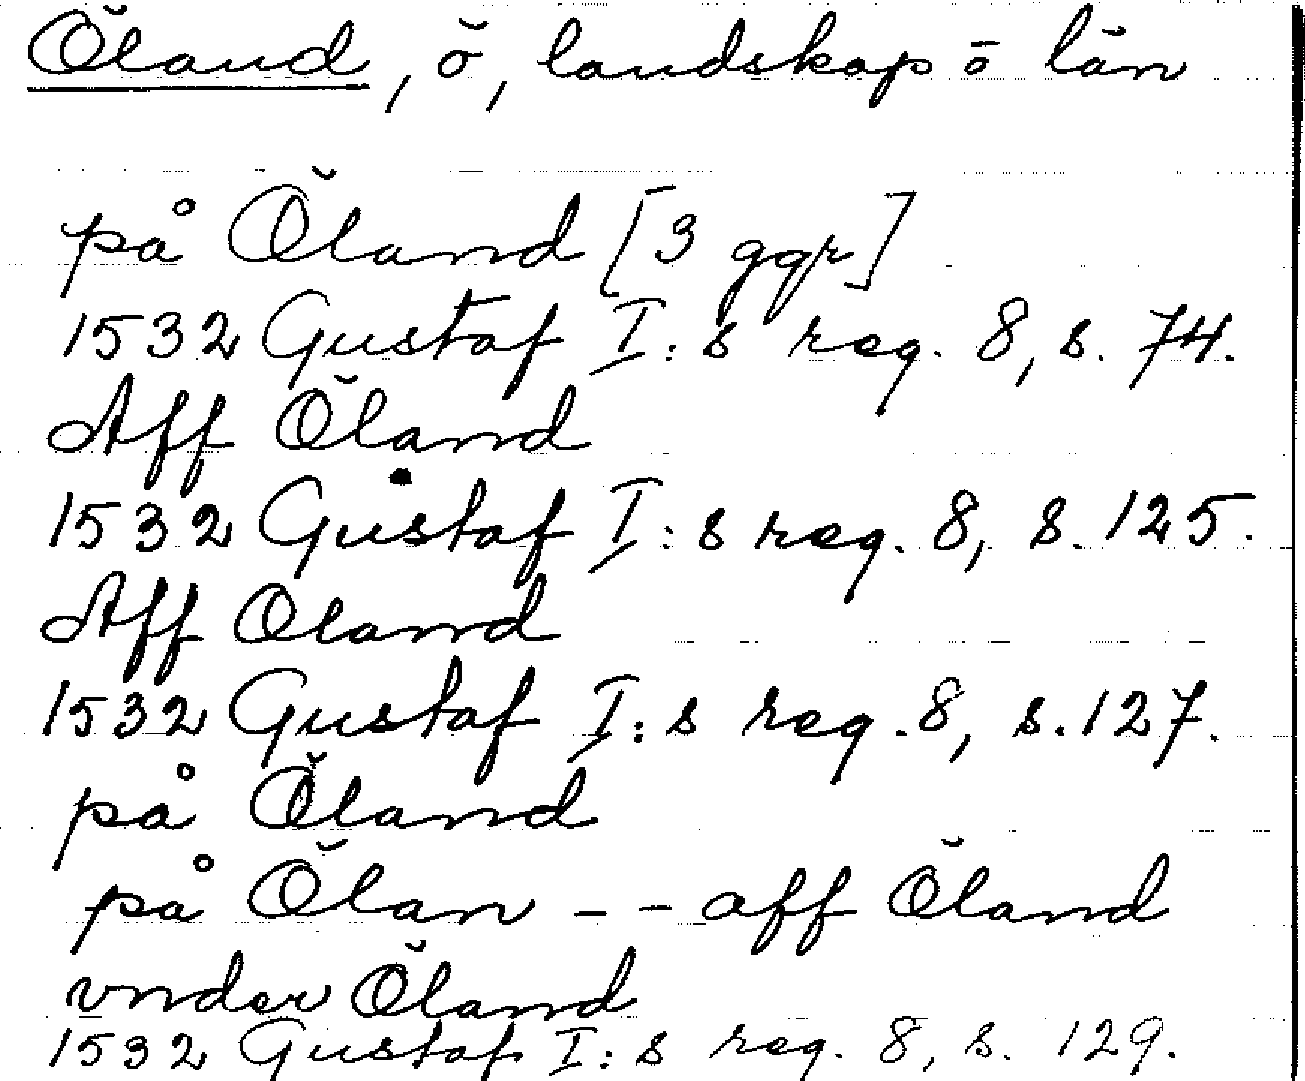 Öland, ö, landskap o län
på Öland [3 ggr]
1532 Gustaf I:s reg. 8, s. 74.
Aff Öland
1532 Gustaf I:s reg. 8, s. 125.
Aff Oland
1532 Gustaf I:s reg. 8, s. 127.
på Öland
på Ölan - - aff Öland
vnder Öland
1532 Gustaf I:s reg. 8, s. 129.